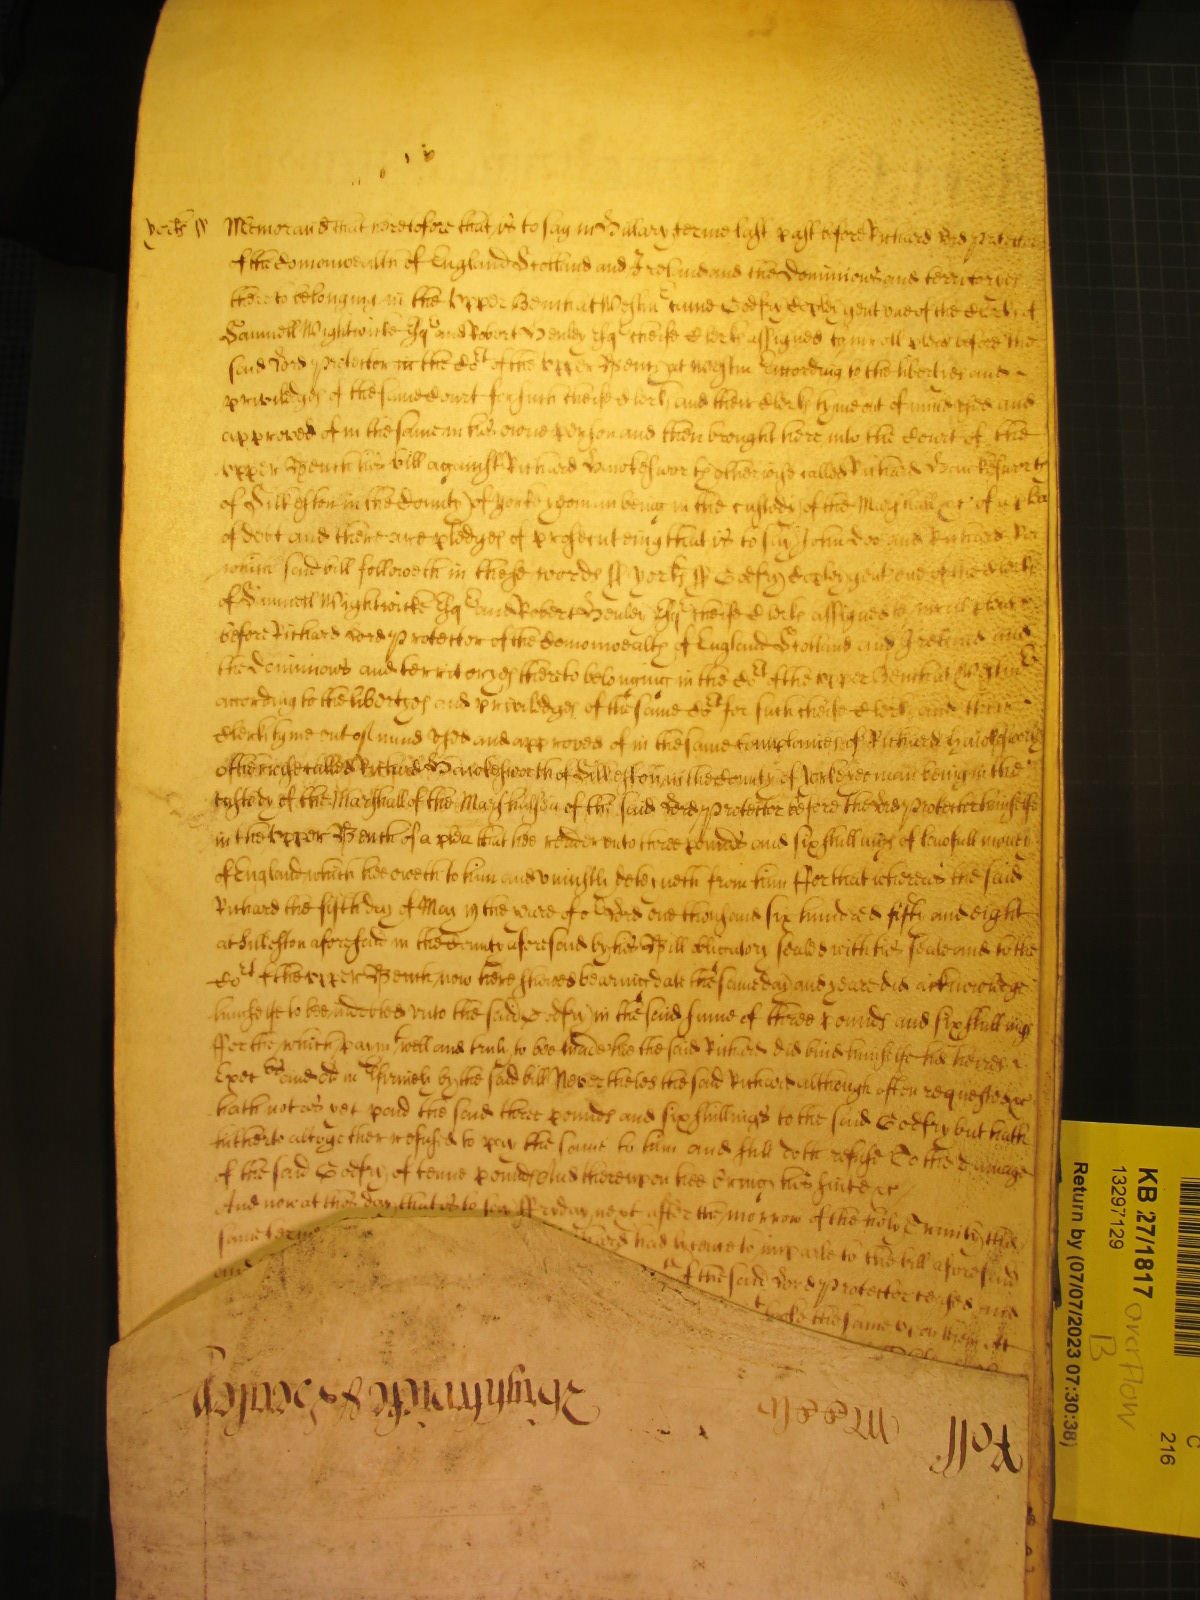 yorks ss Memorand that heretofore that is to say in Hillary terme last past before Richard Lord Protector
of the Comonwealth of England Scotland and Ireland and the Dominions and territories
thereto belonging in the Upper Bench at Westm came Godfry Copley gent one of the Clerks of
Samuell Wightwicke Esq and Robert Henley Esq cheife Clerks assigned to inroll pleas before the
said Lord Protector in the Cot of the Upper Bench at Westm according to the liberties and
priviledges of the same Court for such cheife Clerks and their Clerks tyme out of mind used and
approved of in the same in his owne person and then brought here into the Court of the
Upper Bench his bill against Richard Hawkesworth otherwise called Richard Hawkesworth
of Silkeston in the County of Yorke yeoman being in the custody of the Marshall &c of a plea
of debt and there are pledges of prosecuteing that is to say John Doe and Richard Roe
which said bill followeth in these words ss yorks ss Godfry Copley gent one of the Clerks
of Samuell Wightwicke Esq and Robert Henley Esq cheife Clerks assigned to inroll pleas
before Richard Lord Protector of the Comonwealth of England Scotland and Ireland and
the Dominions and territoryes thereto belonging in the Cot of the Upper Bench at Westm
according to the libertyes and priviledges of the same Cot for such cheife Clerks and their
Clerks tyme out of mind used and approved of in the same complaines of Richard Hawkesworth
otherwise called Richard Hawkesworth of Silkeston in the County of Yorke yeoman being in the
custody of the Marshall of the Marshalsea of the said Lord Protector before the Lord Protector himselfe
in the Upper Bench of a plea that hee render unto three pounds and six shillings of lawfull money
of England which hee oweth to him and uniustly deteyneth from him For that whereas the said
Richard the fifth day of May in the yeare of or Lord one thousand six hundred fifty and eight
at Silkeston aforesaid in the County aforesaid by his Bill obligatory sealed with his seale and to the
Cot of the Upper Bench now here shewed beareing date the same day and yeare did acknowledge
himselfe to bee indebted unto the said Godfry in the said summe of three pounds and six shillings
For the which paymt well and truly to bee made hee the said Richard did bind himselfe his heires
Exec and firmely by the said bill Neverthelesse the said Richard although often requested &c
hath not as yet paid the said three pounds and six shillings to the said Godfry but hath
hitherto altogether refused to pay the same to him and still doth refuse To the damage
of the said Godfry of tenne pounds And thereupon hee brings his suite &c
And now at this day that is to say Fryday next after the morrow of the holy Trinity this
same terme had licence to imparle to the bill aforesaid
and of the said Lord Protector ceased and
the same upon them
Roll
Wightwicke & Henley
KB 27/1817
13297129
Return by (07/07/2023 07:30:38)
overflow
B
C
216